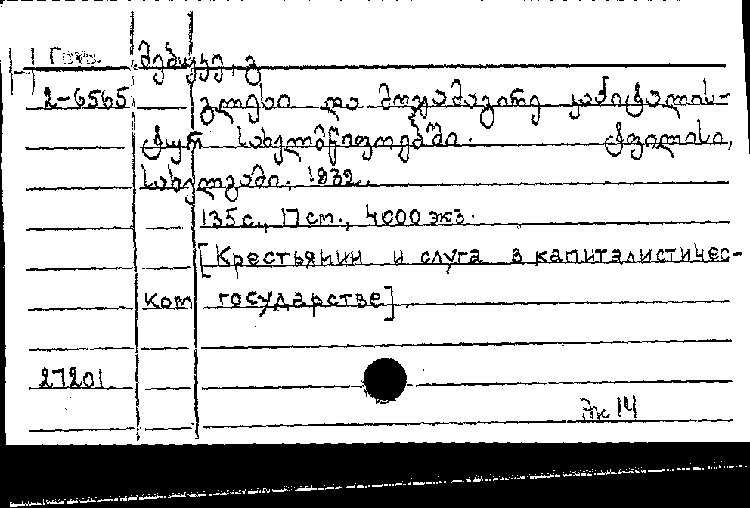 მებუკე, გ
2-6565 გლეხი და მოჯამაგირე კაპიტალის-
ტურ სახელმწიფოებში. ტფილისი,
სახელგამი, 1932.
135 с., 17 cm., 4000 экз.
[Крестьянин и слуга в капиталистичес-
ком государстве]
27201
14